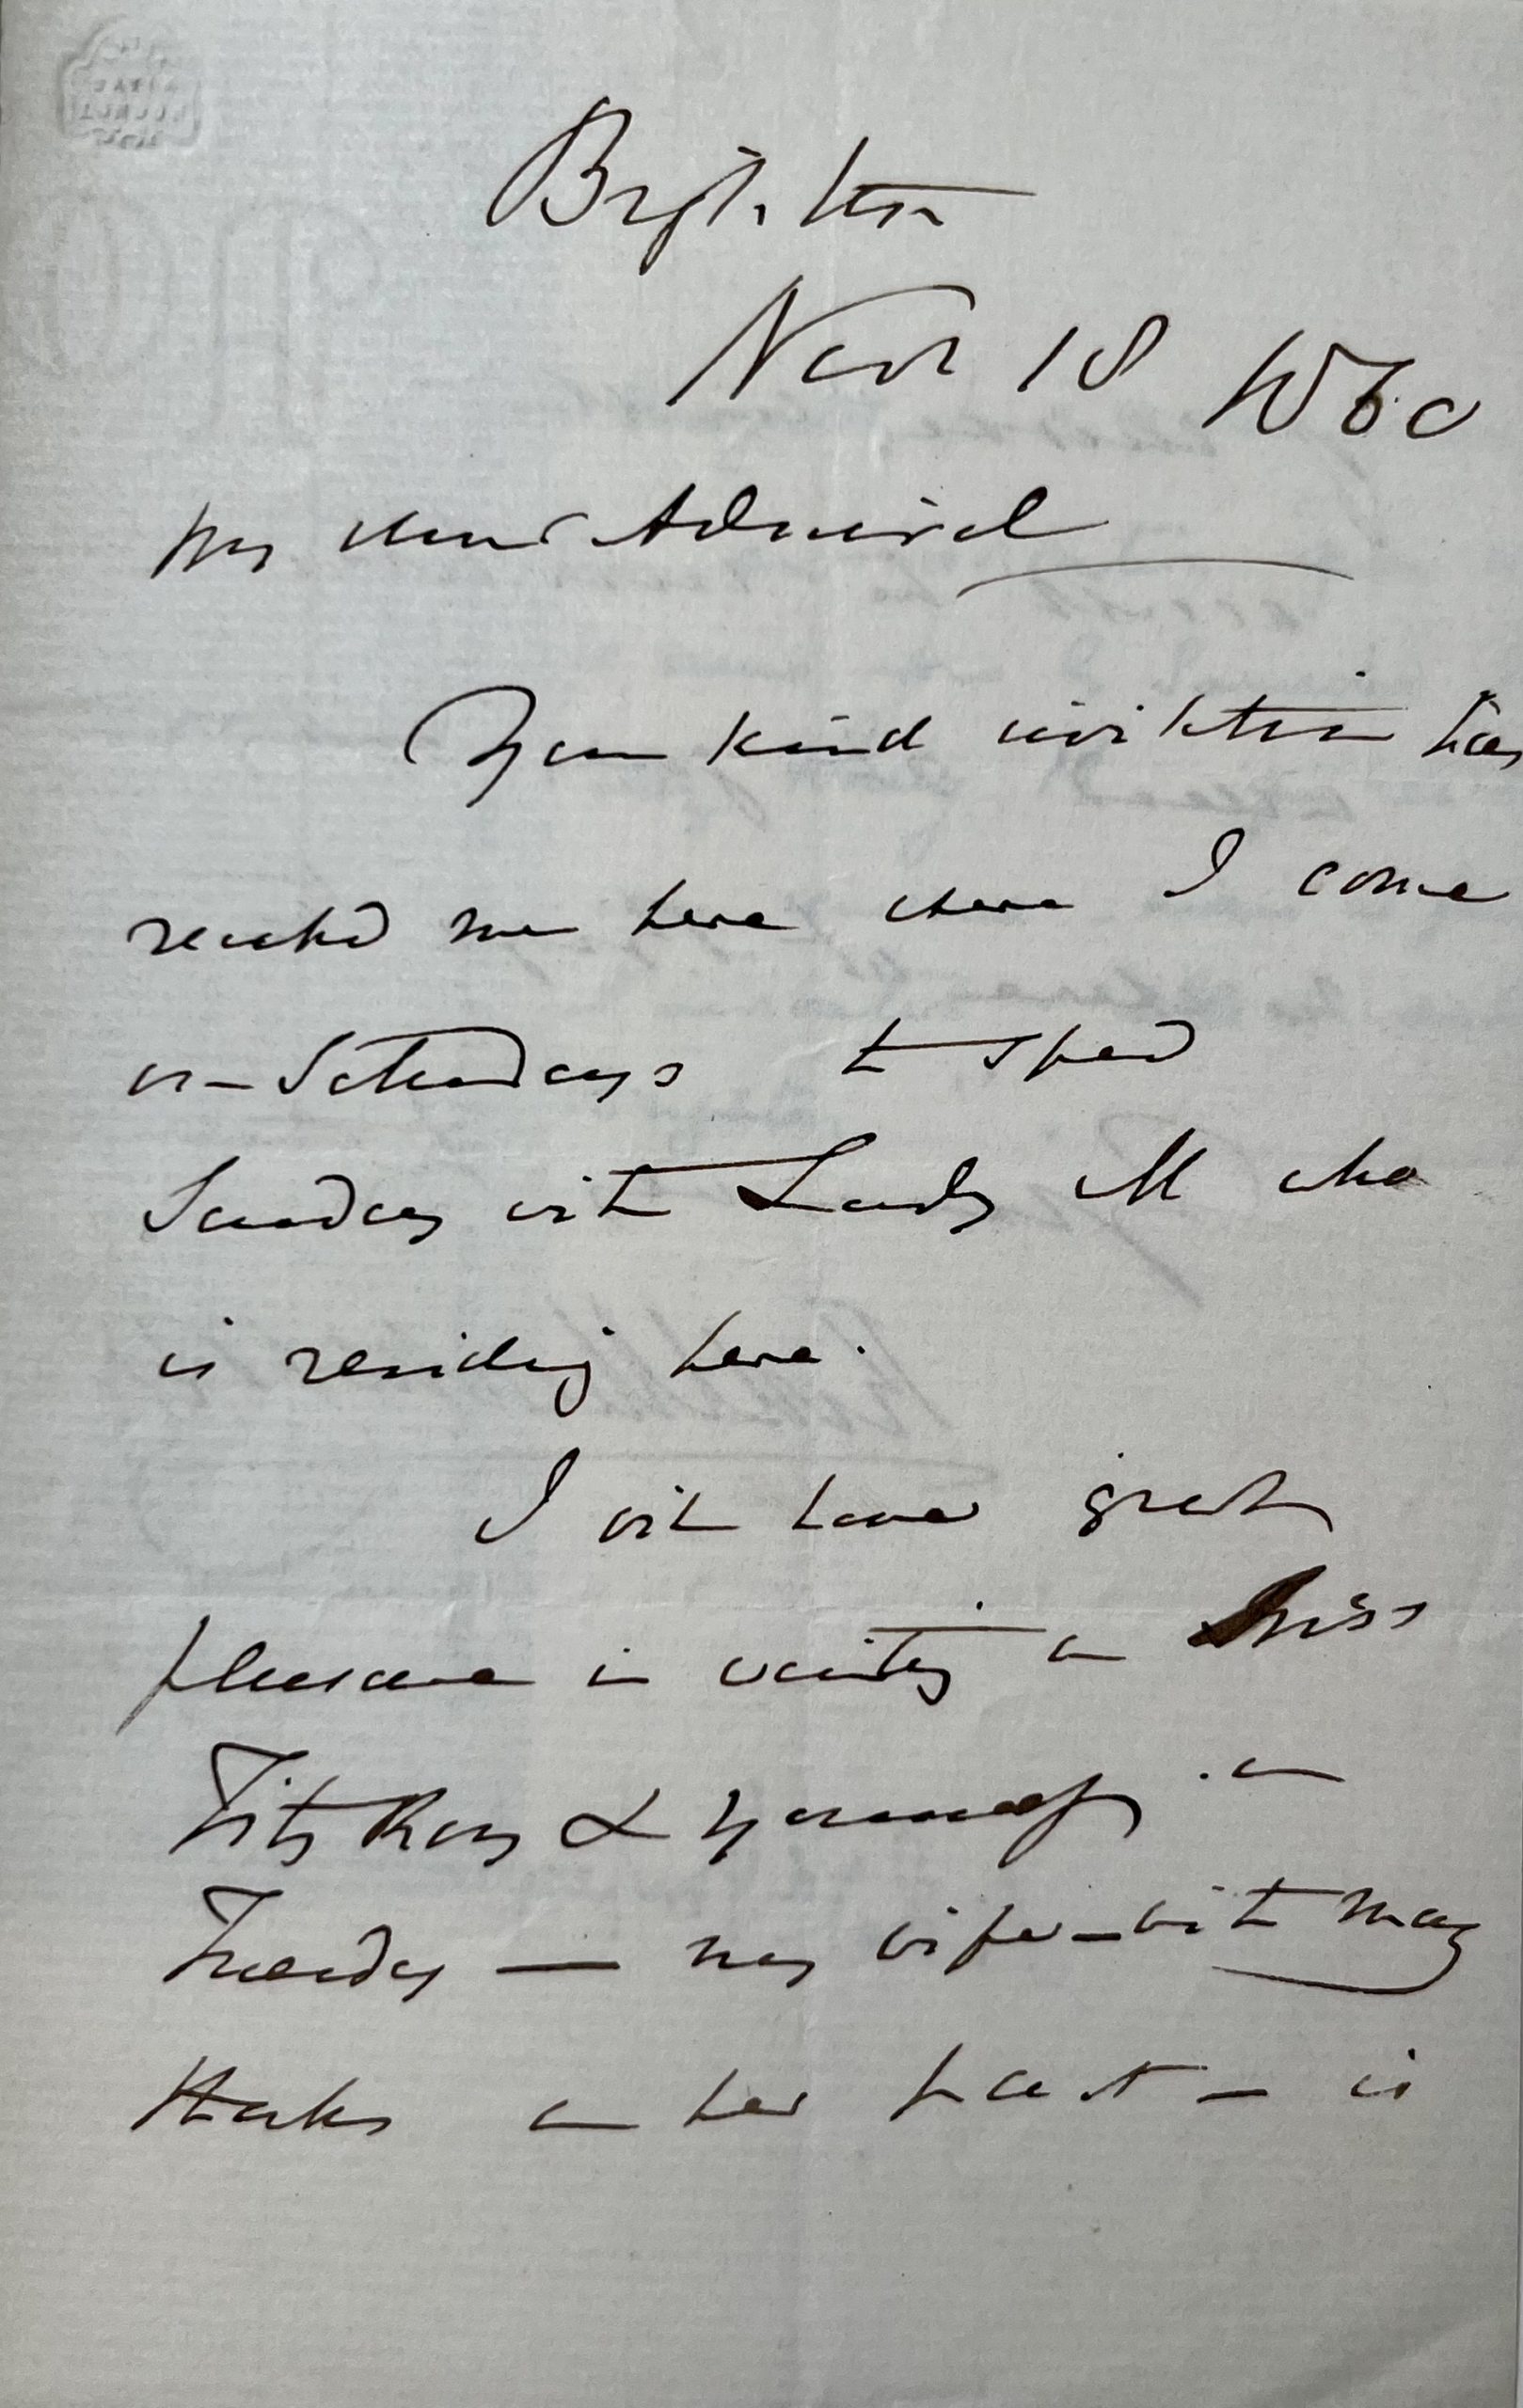 Brighton
Novr 18 1860
My dear Admiral
Your kind invitation has
reached me here where I come
on Saturdays to spend
Sunday with Lady M who
is residing here.
I will have great
pleasure in waiting on Miss
FitzRoy & yourself on
Tuesday — my wife — with many
thanks on her part — is